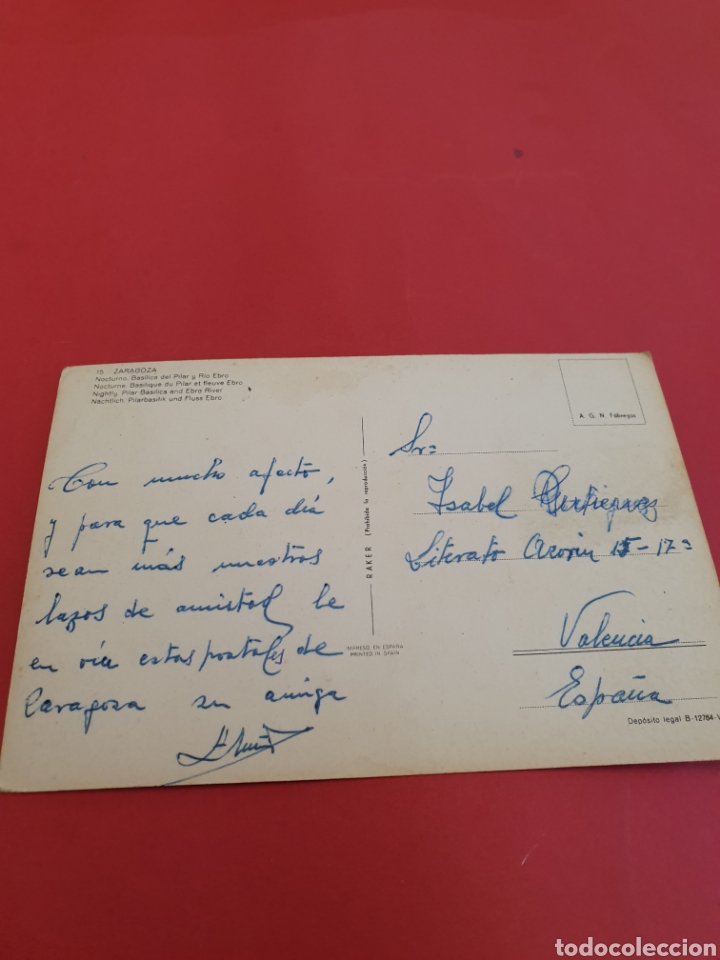 15 ZARAGOZA
Nocturno. Basílica del Pilar y Río Ebro
Nocturne. Basilique du Pilar et fleuve Ebro
Nightly. Pilar Basilica and Ebro River
Nächtlich. Pilarbasilik und Fluss Ebro
Con mucho afecto,
y para que cada día
sean más nuestros
lazos de amistad le
en vía estas postales de
Zaragoza su amiga
RAKER (Prohibida la reproducción)
IMPRESO EN ESPAÑA
PRINTED IN SPAIN
A. G. N. Fábregas
Sra:
Isabel
Literato Azorín 15-17ª
Valencia
España
Depósito legal B-12764-V
todocoleccion